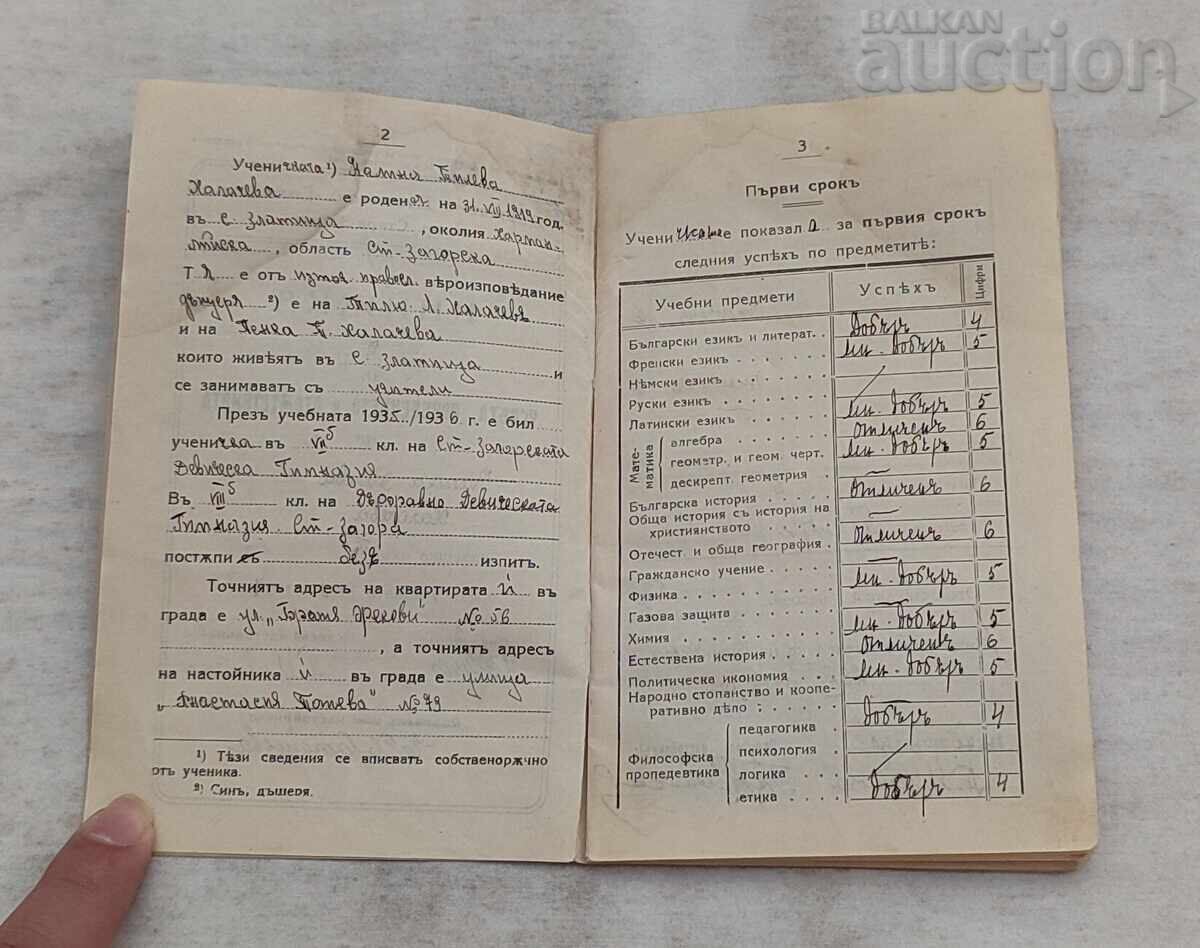 BALKAN
auction
2
Ученичката ¹) Калчева
Халачева е роденa на 31. VIII 1919 год.
въ с. Златица, околия Харман-
лийска, область Ст.-Загорска
Тя е отъ източ. правосл. вѣроизповѣдание
дъщеря ²) е на Л. Халачевъ
и на Пенка Т. Халачева
които живѣятъ въ с. Златица и
се занимаватъ съ учители
Презъ учебната 1935/1936 г. е бил
ученичка въ VII б кл. на Ст.-Загорската
Девическа Гимназия
Въ VIII б кл. на Държавна Девическата
Гимназия Ст.-Загора
постѫпи съ безъ изпитъ.
Точниятъ адресъ на квартирата ѝ въ
града е ул. „Братя Жекови" № 56
, а точниятъ адресъ
на настойника ѝ въ града е улица
„Анастасия Тошева" № 79
¹) Тѣзи сведения се вписватъ собственорѫчно
отъ ученика.
²) Синъ, дъщеря.
3
Първи срокъ
Ученичката е показала за първия срокъ
следния успѣхъ по предметитѣ:
Учебни предмети Успѣхъ Цифри
Български езикъ и литерат. Добъръ 4
Френски езикъ Мн. добъръ 5
Нѣмски езикъ
Руски езикъ
Латински езикъ Мн. добъръ 5
Математика алгебра Отличенъ 6
геометр. и геом. черт. Мн. добъръ 5
дескрепт. геометрия —
Българска история Отличенъ 6
Обща история съ история на
християнството —
Отечест. и обща география Отличенъ 6
Гражданско учение —
Физика Мн. добъръ 5
Газова защита —
Химия Мн. добъръ 5
Естествена история Отличенъ 6
Политическа икономия Мн. добъръ 5
Народно стопанство и коопе-
ративно дѣло
Философска пропедевтика педагогика Добъръ 4
психология
логика
етика Добъръ 4